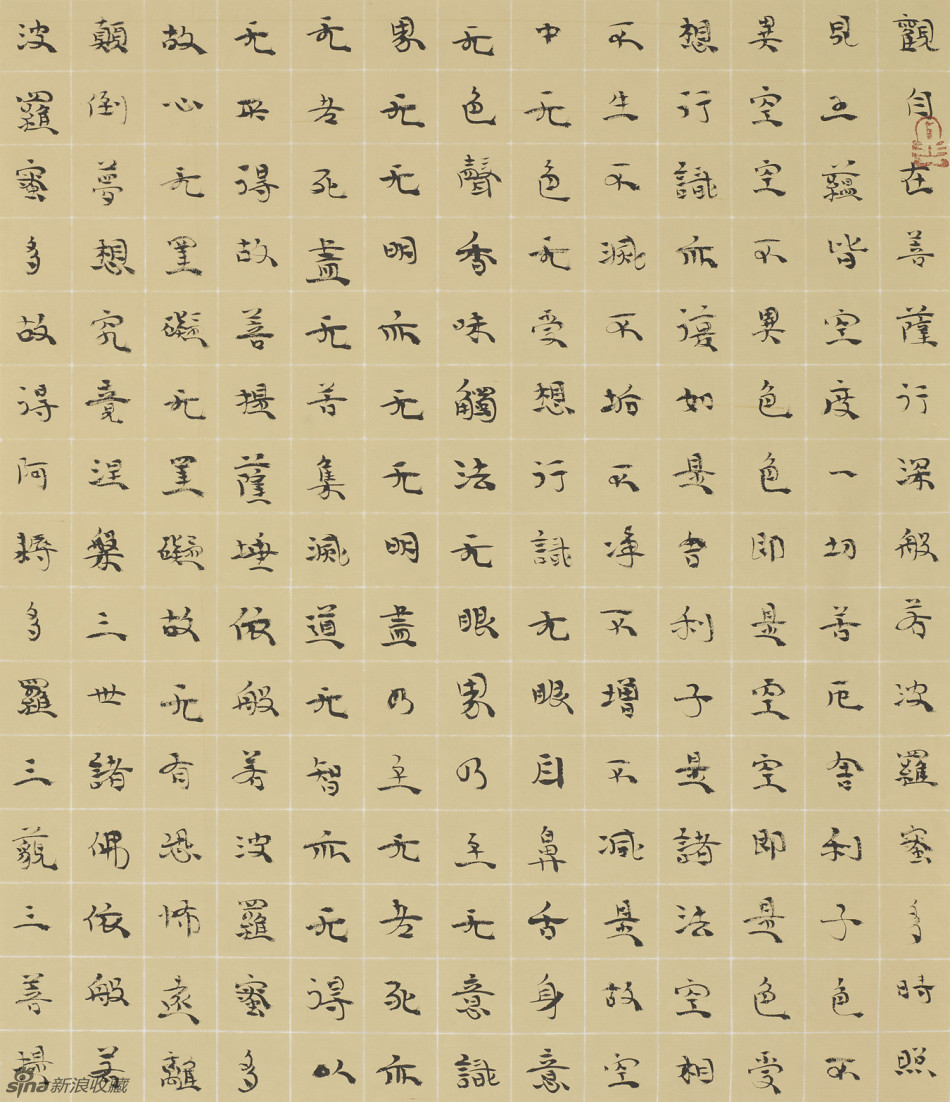 觀自在菩薩行深般若波羅蜜多時照
見五蘊皆空度一切苦厄舍利子色不
異空空不異色色即是空空即是色受
想行識亦復如是舍利子是諸法空相
不生不滅不垢不净不增不减是故空
中无色无受想行識无眼耳鼻舌身意
无色聲香味觸法无眼界乃至无意識
界无无明亦无无明盡乃至无老死亦
无老死盡无苦集滅道无智亦无得以
无所得故菩提薩埵依般若波羅蜜多
故心无罣礙无罣礙故无有恐怖遠離
顛倒夢想究竟涅槃三世諸佛依般若
波羅蜜多故得阿耨多羅三藐三菩提
sina新浪收藏